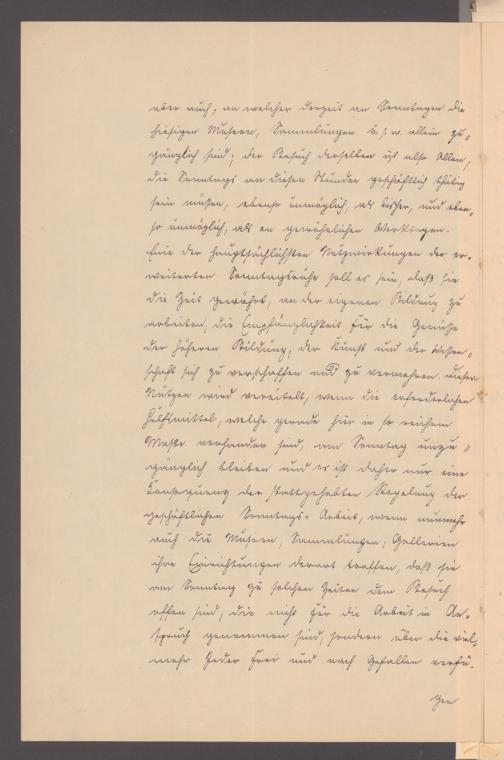 aber auch, an welcher derzeit an Sonntagen die
hiesigen Museen, Sammlungen u. s. w. allein zu-
gänglich sind; der Besuch derselben ist also Allen,
die Sonntags an diesen Stunden geschäftlich thätig
sein müssen, ebenso unmöglich, als bisher, und eben-
so unmöglich, als an gewöhnlichen Werktagen.
Eine der hauptsächlichsten Nutzwirkungen der er-
weiterten Sonntagsruhe soll es sein, daß sie
die Zeit gewährt, an der eigenen Bildung zu
arbeiten, die Empfänglichkeit für die Genüsse
der höheren Bildung, der Kunst und der Wissen-
schaft sich zu verschaffen und zu vermehren. Dieser
Nutzen wird vereitelt, wenn die erforderlichen
Hülfsmittel, welche gerade hier in so reichem
Maße vorhanden sind, am Sonntag unzu-
gänglich bleiben und es ist daher nur eine
Consequenz der stattgehabten Regelung der
geschäftlichen Sonntags-Arbeit, wenn nunmehr
auch die Museen, Sammlungen, Gallerien
ihre Einrichtungen derart treffen, daß sie
am Sonntag zu solchen Zeiten dem Besuch
offen sind, die nicht für die Arbeit in An-
spruch genommen sind, sondern über die viel-
mehr Jeder frei und nach Gefallen verfü-
gen